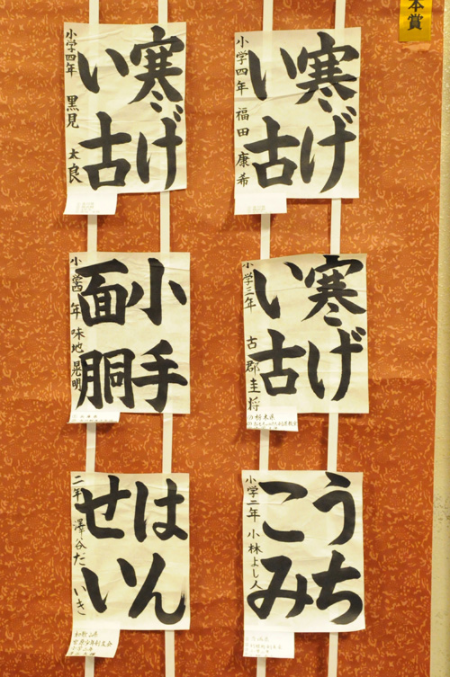 本賞
寒げ
い古
小学四年 福田康希
寒げ
い古
小学四年 黒見 太良
寒げ
い古
小学三年 古郡圭将
小手
面胴
小学四年 味地晃明
うち
こみ
小学二年 小林よし人
はん
せい
二年 澤谷だいき